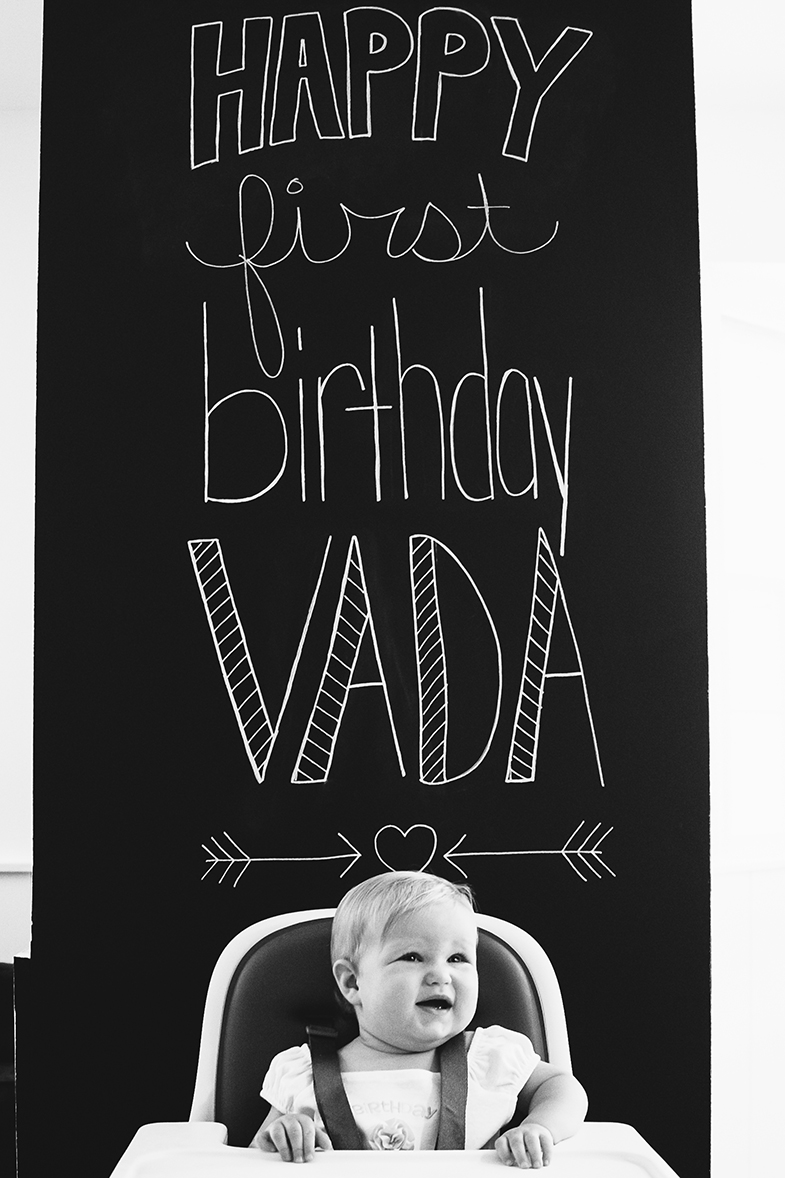 HAPPY
first
birthday
VADA
BIRTHDAY